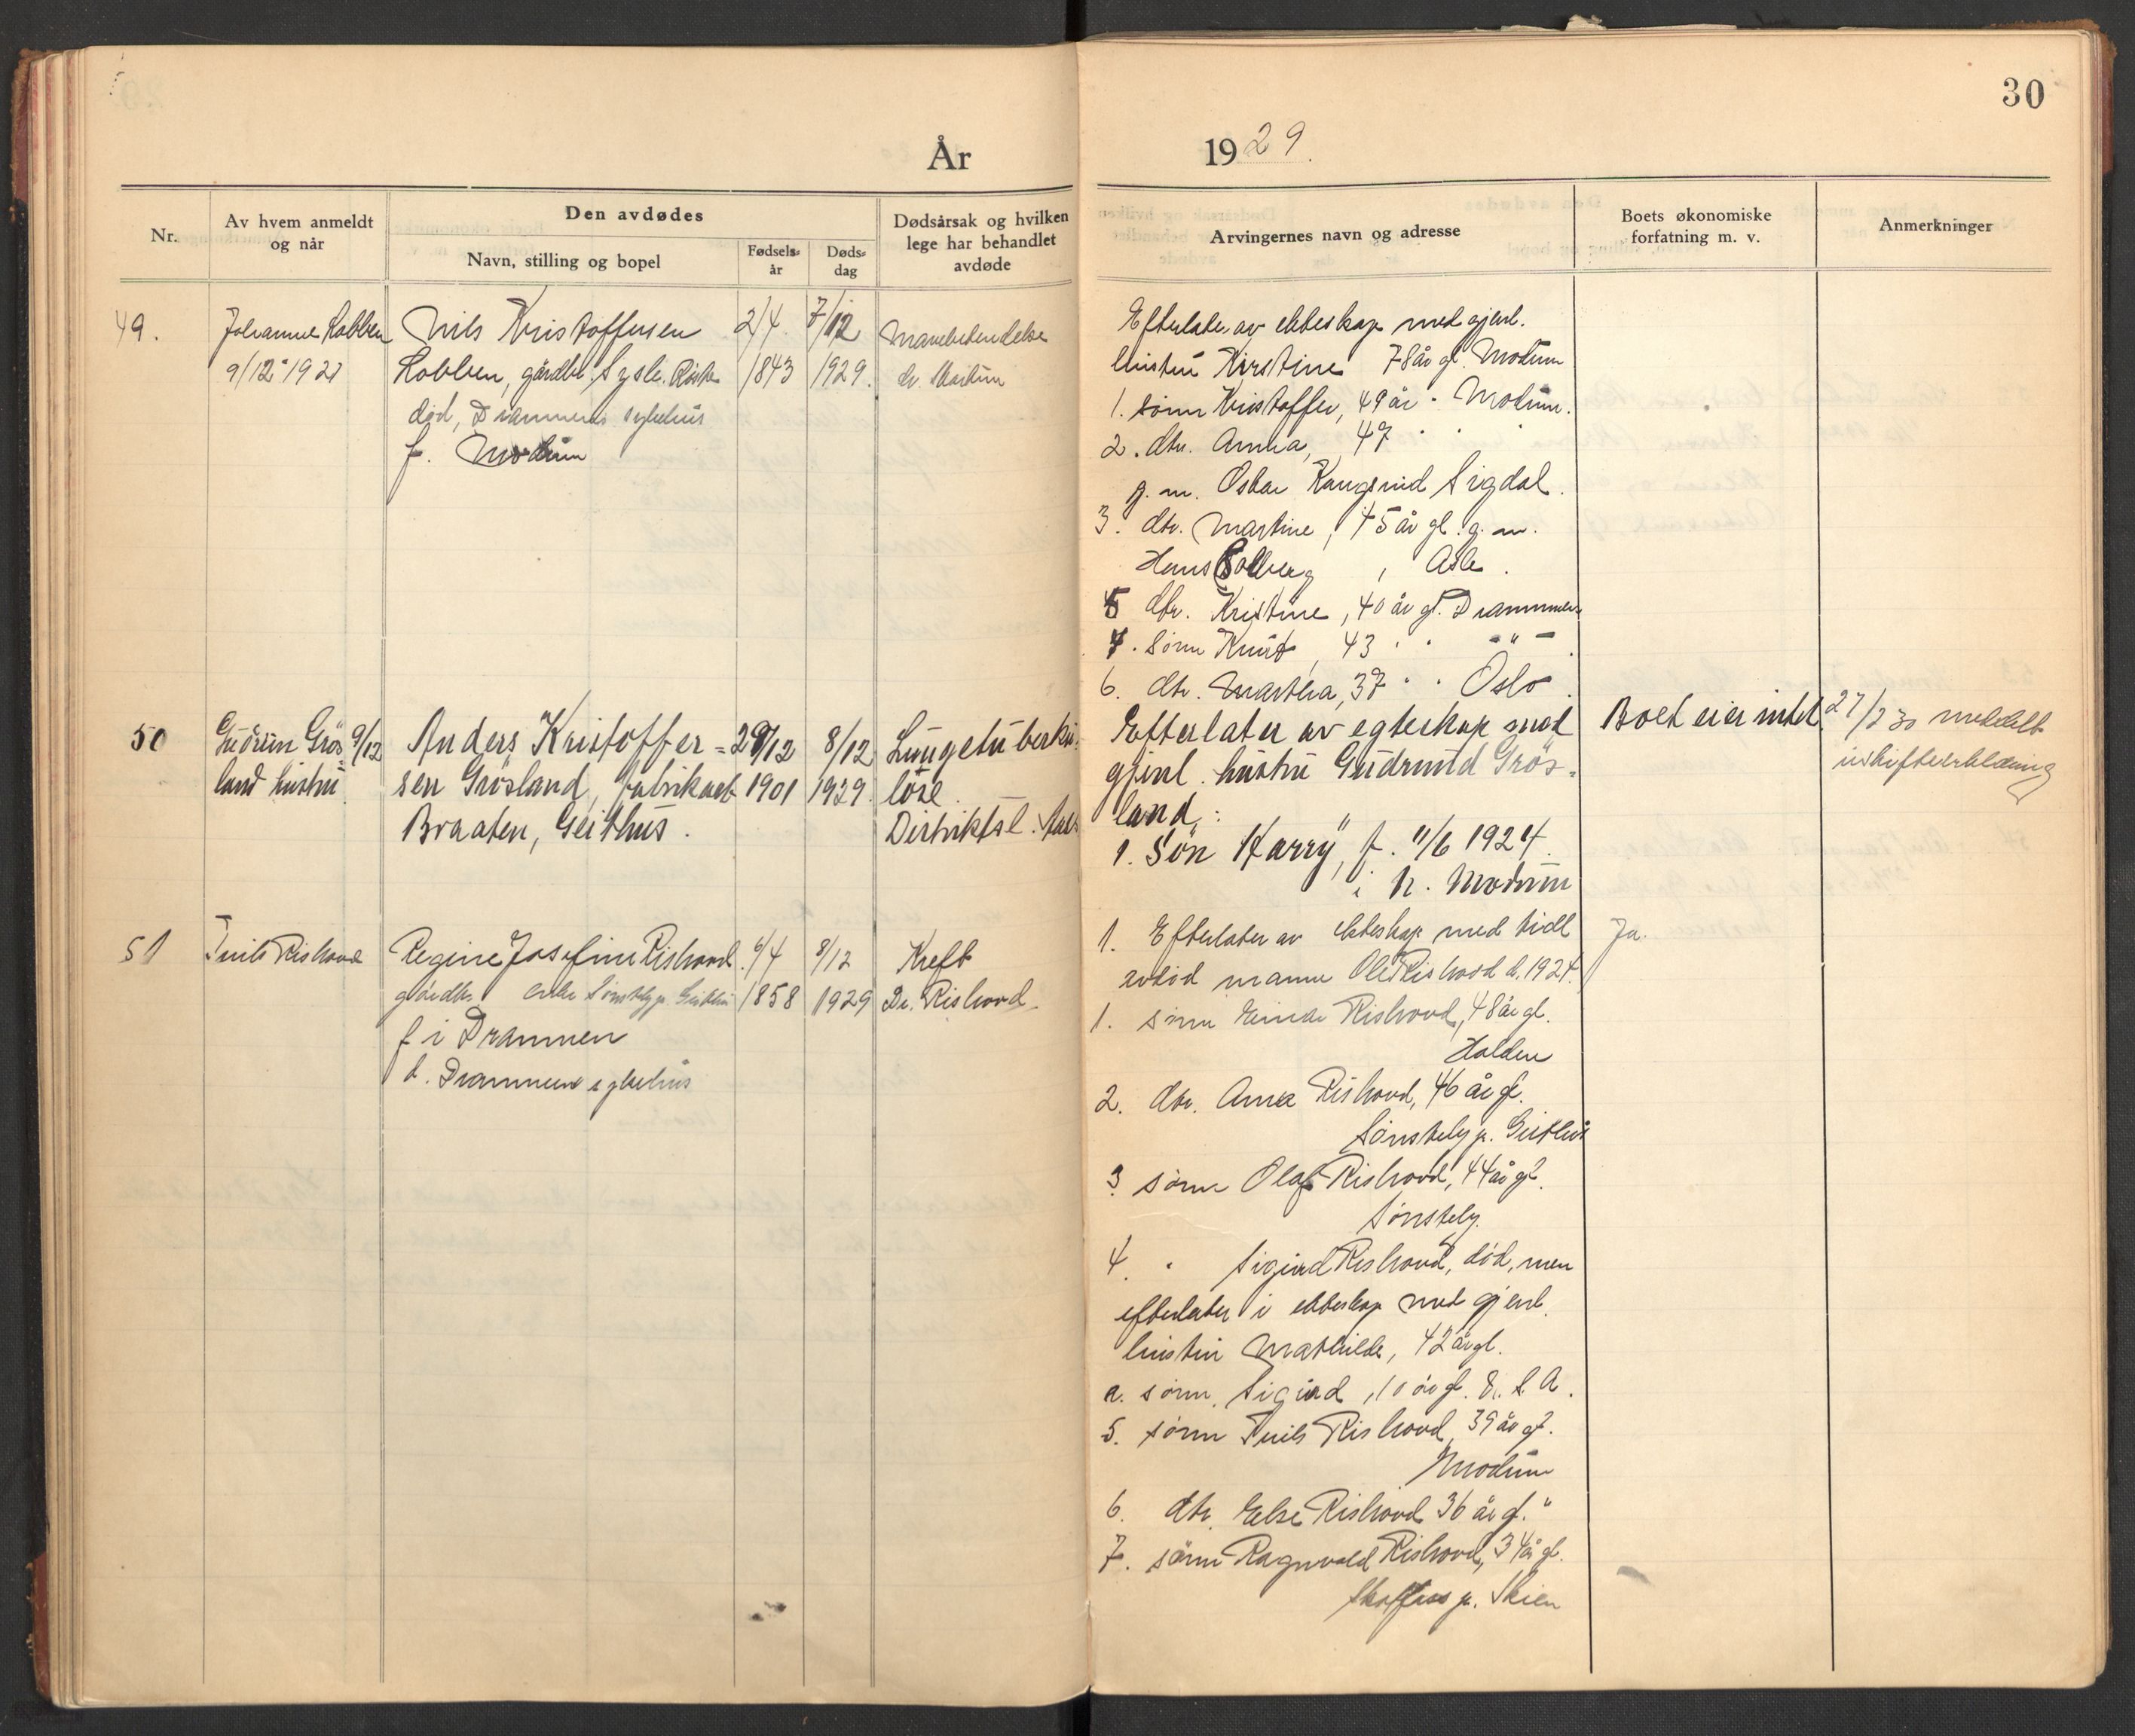 30
År
1929.
Nr.
Av hvem anmeldt
og når
Den avdødes
Navn, stilling og bopel
Fødsels-
år
Døds-
dag
Dødsårsak og hvilken
lege har behandlet
avdøde
Arvingernes navn og adresse
Boets økonomiske
forfatning m. v.
Anmerkninger
49.
Johanne Kobben
9/12-1929
Nils Kristoffersen
Kobben, gårdbr.
død, Drammens sykehus
f. Modum
2/4
1843
7/12
1929.
Mavebetendelse
dr.
Efterlater av ekteskap med gjenl.
hustru Kirstine 78 år gl. Modum
1. sønn Kristoffer, 49 år " Modum.
2. dtr. Anna, 47 " "
g. m. Oskar Kangsrud Sigdal.
3. dtr. Martine, 45 år gl. g. m.
Hans Solberg, Asker.
5 dtr. Kristine, 40 år gl. Drammen
4. sønn Knut, 43 " " - " -
6. dtr. Martha, 37 " " Oslo.
50
Gudrun Grøs- 9/12
land hustru
Anders Kristoffer-
sen Grøsland, fabrikarb
Braaten, Geithus.
29/12
1901
8/12
1929.
Lungetuberku-
lose.
Distriktsl.
Efterlater av egteskap med
gjenl. hustru Gudrund Grøs-
land:
1. Søn "Harry", f. 11/6 1924.
i N. Modum
Boet eier intet.
27/2 30 meddelt
uskifteerklæring
51
Truls Rishovd
Regine Josefine Rishovd
gårdbr. enke Sønsteby p. Geithus
f i Drammen
d. Drammens sykehus
6/4
1858
8/12
1929
Kreft
Dr. Rishovd
1. Efterlater av ekteskap med tidl
avdød mann Ole Rishovd d. 1924.
1. sønn Einar Rishovd, 48 år gl.
Halden
2. dtr. Anna Rishovd, 46 år gl.
Sønsteby p. Geithus
3 sønn Olaf Rishovd, 44 år gl.
Sønsteby.
4. " Sigurd Rishovd, død, men
efterlater i ekteskap med gjenl.
hustru Mathilde, 42 år gl.
a. sønn, Sigurd, 10 år gl. U. S. A.
5. sønn Truls Rishovd, 39 år gl.
Modum
6. dtr. Else Rishovd 36 år gl. "
7. sønn Ragnvald Rishovd, 34 år gl.
Skotfoss p. Skien
Ja.